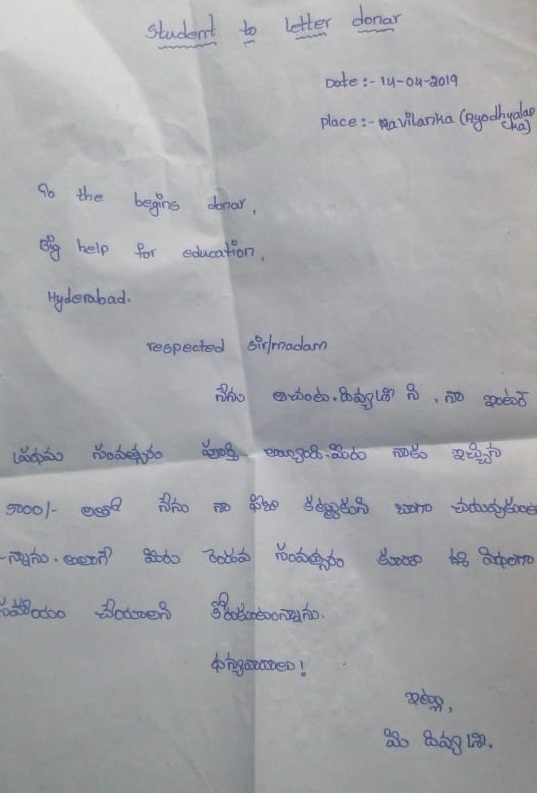 Student to letter donar
Date :- 14-04-2019
place :- Mavilanka (Ayodhyalan
ka)
To the begins donar,
Big help for education,
Hyderabad.
respected sir/madam
నేను అచంట. దివ్యశ్రీ ని, నా ఇంటర్
ప్రథమ సంవత్సరం పూర్తి అయ్యింది. మీరు నాకు ఇచ్చిన
5000/- తో నేను నా ఫీజు కట్టుకుని బాగా చదువుకుంటు
-న్నాను. అలాగే మీరు రెండవ సంవత్సరం కూడా ఈ విధంగా
సహాయం చేయాలని కోరుకుంటున్నాను.
ధన్యవాదాలు!
ఇట్లు,
మీ దివ్యశ్రీ.